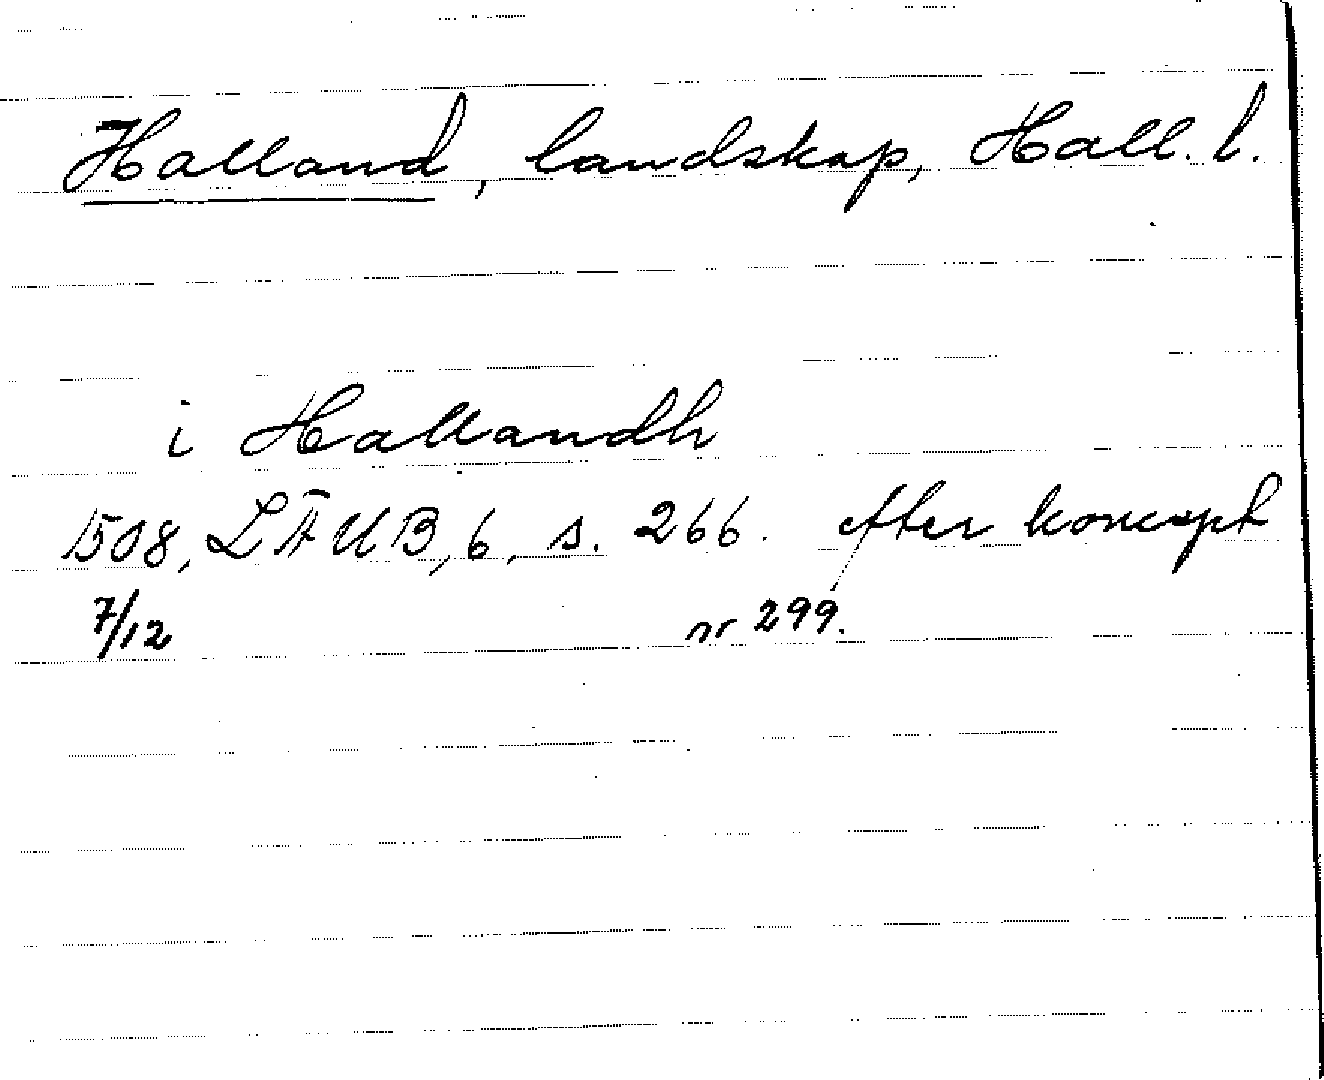 Halland, landskap, Hall. l.
i Hallandh
1508, LÄUB, 6, s. 266. efter koncept
7/12 nr 299.